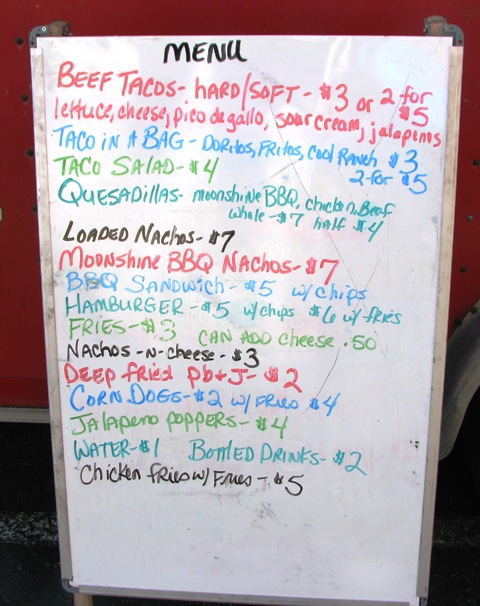 MENU
BEEF TACOS - HARD/SOFT - $3 or 2 for $5
lettuce, cheese, pico de gallo, sour cream, jalapenos
TACO IN A BAG - DORITOS, FRITOS, COOL RANCH $3
2 for $5
TACO SALAD - $4
QUESADILLAS - MOONSHINE BBQ, chicken, Beef
whole - $7 half $4
LOADED NACHOS - $7
MOONSHINE BBQ NACHOS - $7
BBQ SANDWICH - $5 w/ chips
HAMBURGER - $5 w/ chips $6 w/ fries
FRIES - $3 CAN ADD cheese .50
NACHOS -N- cheese - $3
DEEP fried pb + J - $2
CORN DOGS - $2 w/ FRIES $4
JALAPENO POPPERS - $4
WATER - $1 BOTTLED DRINKS - $2
Chicken fries w/ Fries - $5